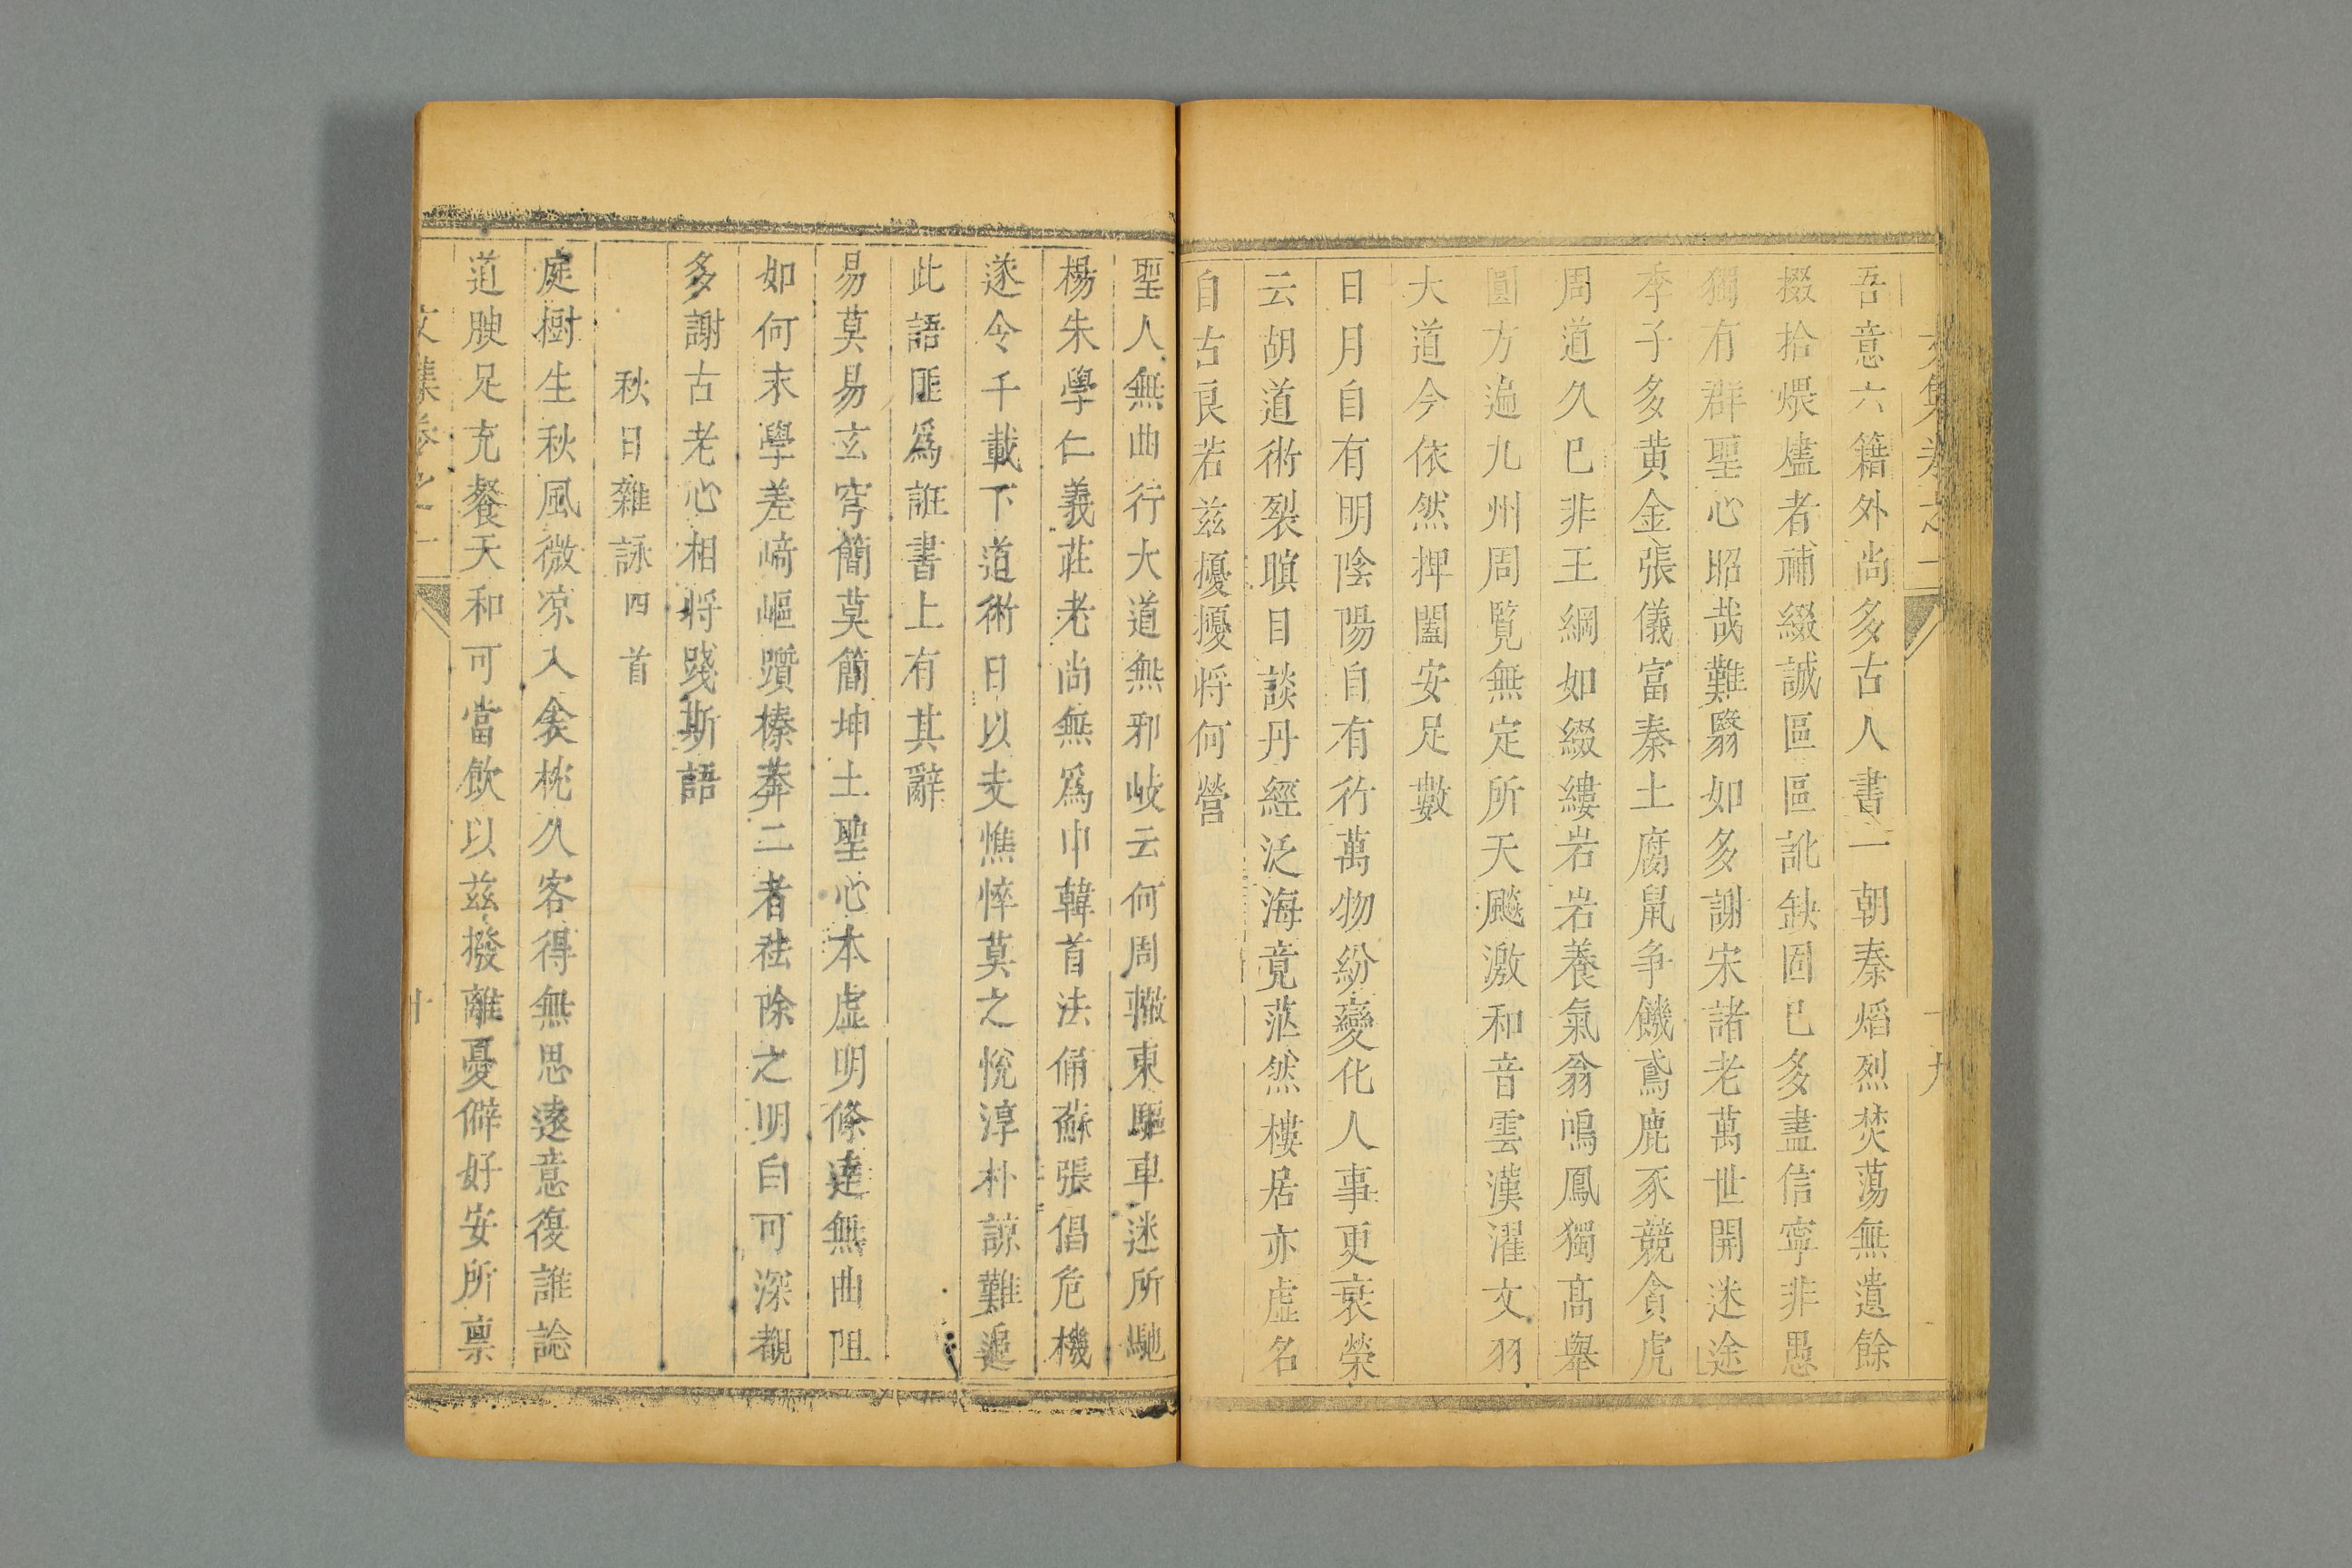 文集卷之一 十九
吾意六籍外尚多古人書一朝秦焰烈焚蕩無遺餘
掇拾煨燼者補綴誠區區訛缺固已多盡信寧非愚
獨有群聖心昭哉難翳如多謝宋諸老萬世開迷途
季子多黃金張儀富秦土腐鼠爭饑鳶鹿豕競貪虎
周道久已非王綱如綴縷岩岩養氣翁鳴鳳獨高舉
圓方遍九州周覽無定所天飈激和音雲漢濯文羽
大道今依然捭闔安足數
日月自有明陰陽自有行萬物紛變化人事更衰榮
云胡道術裂瞋目談丹經泛海竟茫然樓居亦虛名
自古良若茲擾擾將何營
聖人無曲行大道無邪岐云何周轍東驅車迷所馳
楊朱學仁義莊老尚無爲申韓首法俑蘇張倡危機
遂令千載下道術日以支憔悴莫之悅淳朴諒難追
此語匪爲誑書上有其辭
易莫易玄穹簡莫簡坤土聖心本虛明條達無曲阻
如何末學差崎嶇躓榛莽二者祛除之明白可深覩
多謝古老心相將踐斯語
秋日雜詠四首
庭樹生秋風微凉入衾枕久客得無思遠意復誰諗
道腴足充餐天和可當飲以茲撥離憂僻好安所禀
文集卷之一 廿